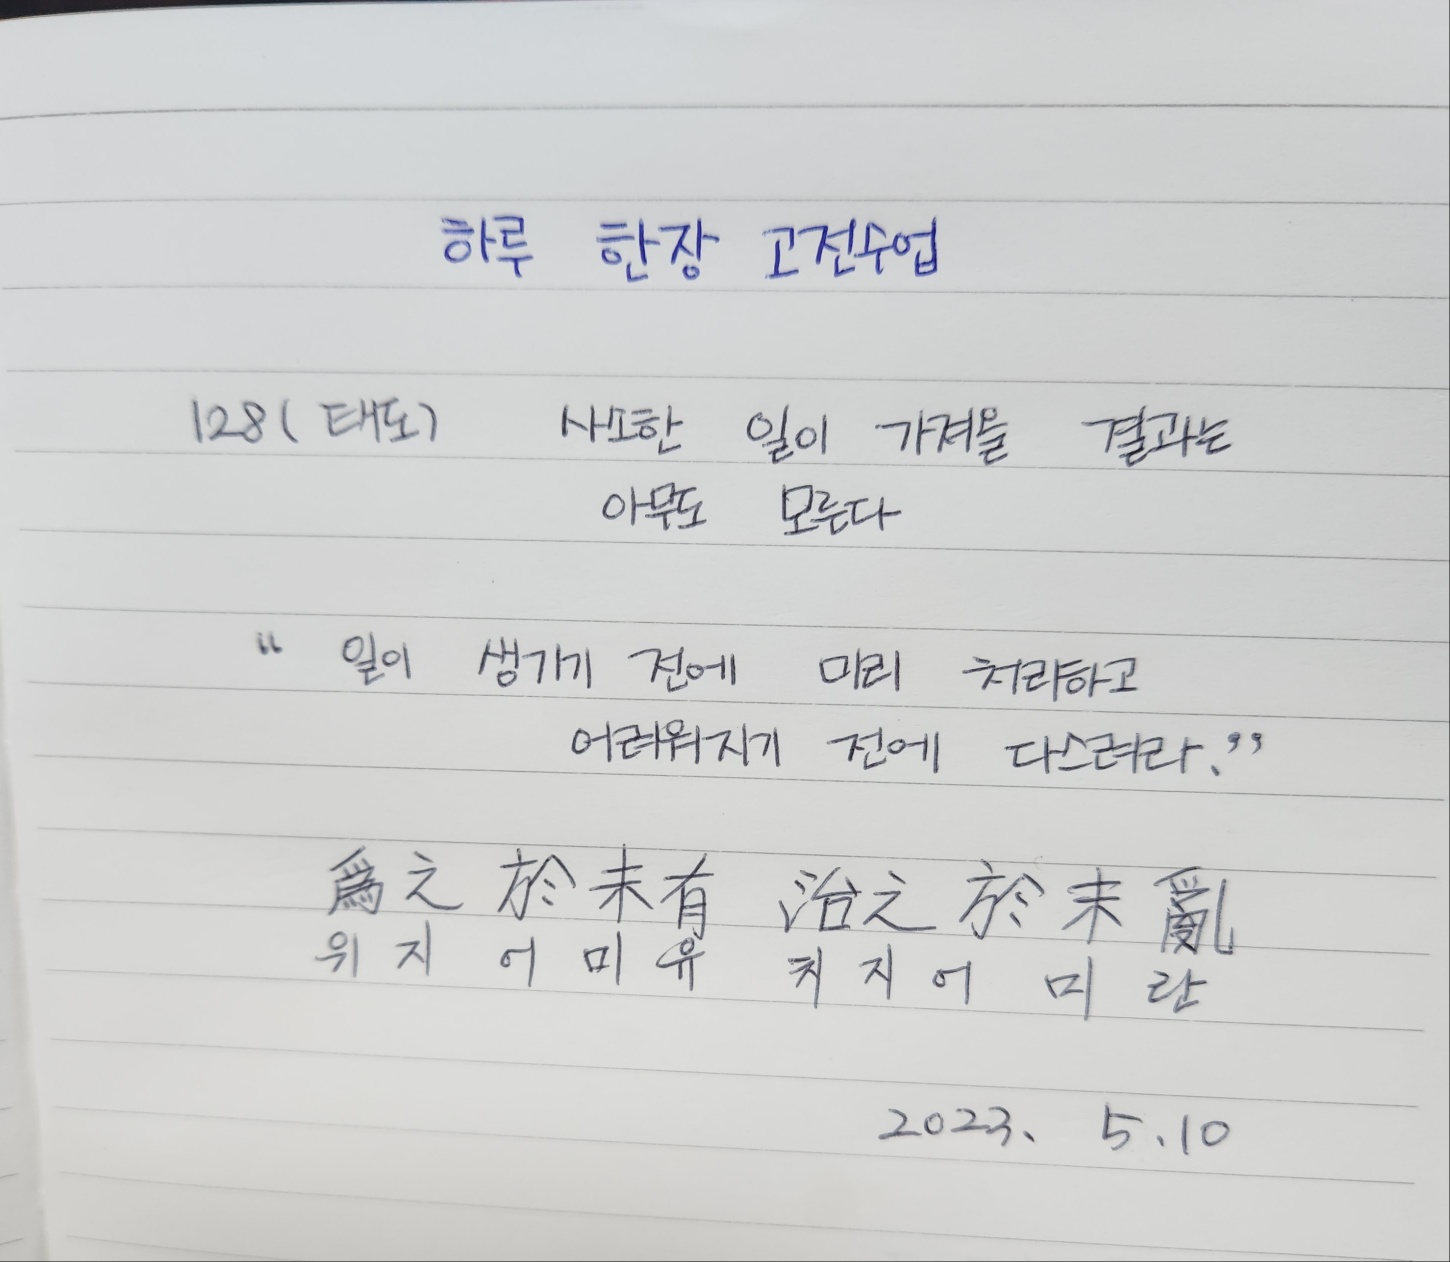 하루 한장 고전수업
128(태도) 사소한 일이 가져올 결과는
아무도 모른다
“ 일이 생기기 전에 미리 처리하고
어려워지기 전에 다스려라.”
爲之於未有 治之於未亂
위지 어미유 치지어 미란
2023. 5.10